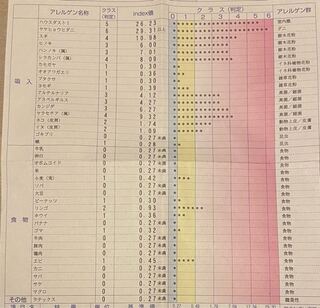 アレルゲン名 クラス(判定) index値 クラス(判定) アレルゲン群
0 1 2 3 4 5 6
ハウスダスト1 3 26.23 室内塵
ヤケヒョウヒダニ 4 29.31以上 ダニ
スギ 4 10.98 樹木花粉
ヒノキ 3 6.00 樹木花粉
ハンノキ(属) 3 7.01 樹木花粉
シラカンバ(属) 4 8.09 樹木花粉
カモガヤ 0 0.30 イネ科植物花粉
オオアワガエリ 1 0.36 イネ科植物花粉
ブタクサ 1 雑草花粉
ヨモギ 1 0.39 雑草花粉
アルテルナリア 3 4.12 真菌/細菌
アスペルギルス 3 4.27 真菌/細菌
カンジダ 3 真菌/細菌
マラセチア(属) 4 9.32 真菌/細菌
ネコ(皮屑) 2 1.74 動物上皮/皮膚
イヌ(皮屑) 2 1.09 動物上皮/皮膚
ゴキブリ 0 0.27未満 昆虫
蛾 1 0.28 昆虫
牛乳 0 0.27未満 食物
卵白 0 0.27未満 食物
オボムコイド 0 0.27未満 食物
米 0 0.27未満 食物
小麦(実) 1 0.42 食物
ソバ 0 0.27未満 食物
大豆 0 0.27未満 食物
ピーナッツ 1 0.30 食物
リンゴ 2 0.93 食物
キウイ 1 0.36 食物
バナナ 0 0.27未満 食物
ゴマ 0 0.27未満 食物
牛肉 0 0.27未満 食物
豚肉 0 0.27未満 食物
鶏肉 0 0.27未満 食物
エビ 1 0.45 食物
カニ 0 0.27未満 食物
サバ 0 0.27未満 食物
サケ 0 0.27未満 食物
マグロ 0 0.27未満 食物
ラテックス 0 0.27未満 職業性
吸入
食物
その他